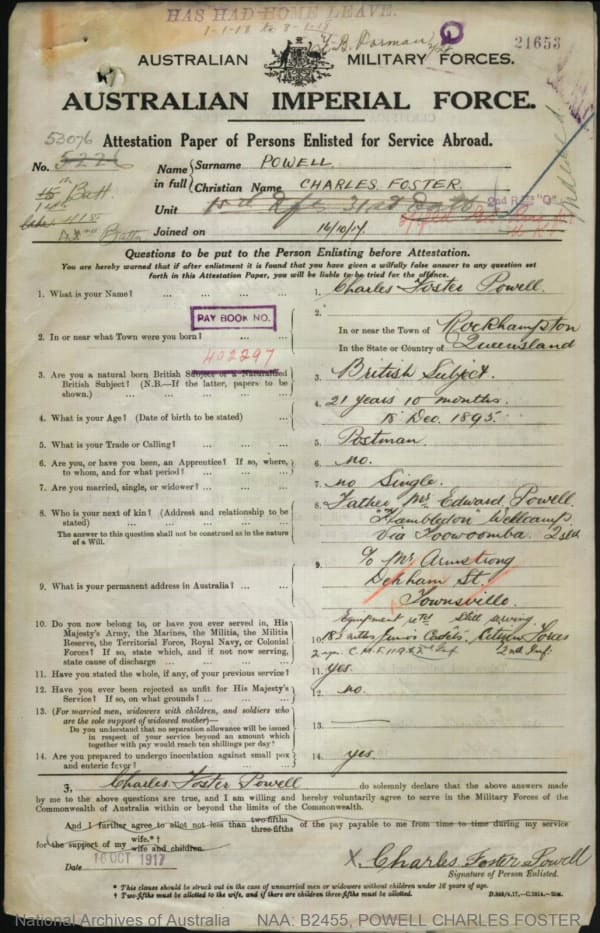 HAS HAD HOME LEAVE.
21653
AUSTRALIAN MILITARY FORCES.
AUSTRALIAN IMPERIAL FORCE.
53076
Attestation Paper of Persons Enlisted for Service Abroad.
No. 5226
Name in full
Surname POWELL.
Christian Name CHARLES FOSTER.
Unit
Joined on 16/10/17.
Questions to be put to the Person Enlisting before Attestation.
You are hereby warned that if after enlistment it is found that you have given a wilfully false answer to any question set
forth in this Attestation Paper, you will be liable to be tried for the offence.
1. What is your Name? ... ... ... 1. Charles Foster Powell.
PAY BOOK NO.
402297
2. In or near what Town were you born? 2. In or near the Town of Rockhampton
In the State or Country of Queensland
3. Are you a natural born British Subject or a Naturalised
British Subject? (N.B.—If the latter, papers to be
shown.) ... ... 3. British Subject.
4. What is your Age? (Date of birth to be stated) ... 4. 21 years 10 months.
18 Dec. 1895.
5. What is your Trade or Calling? ... ... ... 5. Postman.
6. Are you, or have you been, an Apprentice? If so, where,
to whom, and for what period? ... ... 6. no.
7. Are you married, single, or widower? ... ... 7. no Single.
8. Who is your next of kin? (Address and relationship to be
stated) ... ... 8. Father Mr Edward Powell
"Hambledon" Wellcamp
via Toowoomba. Qsld
The answer to this question shall not be construed as in the nature
of a Will.
9. What is your permanent address in Australia? ... ... 9. C/o Mr Armstrong
Denham St.
Townsville.
10. Do you now belong to, or have you ever served in, His
Majesty's Army, the Marines, the Militia, the Militia
Reserve, the Territorial Force, Royal Navy, or Colonial
Forces? If so, state which, and if not now serving,
state cause of discharge ... ... 10. Still serving.
Senior Cadets. Citizen Forces
11. Have you stated the whole, if any, of your previous service? 11. yes.
12. Have you ever been rejected as unfit for His Majesty's
Service? If so, on what grounds? ... ... 12. no.
13. (For married men, widowers with children, and soldiers who
are the sole support of widowed mother)—
Do you understand that no separation allowance will be issued
in respect of your service beyond an amount which
together with pay would reach ten shillings per day? 13. ———
14. Are you prepared to undergo inoculation against small pox
and enteric fever? ... ... 14. yes.
I, Charles Foster Powell do solemnly declare that the above answers made
by me to the above questions are true, and I am willing and hereby voluntarily agree to serve in the Military Forces of the
Commonwealth of Australia within or beyond the limits of the Commonwealth.
And I further agree to allot not less than two-fifths three-fifths of the pay payable to me from time to time during my service
for the support of my wife.*† wife and children.
Date 16 OCT 1917
X. Charles Foster Powell
Signature of Person Enlisted.
* This clause should be struck out in the case of unmarried men or widowers without children under 16 years of age.
† Two-fifths must be allotted to the wife, and if there are children three-fifths must be allotted.
National Archives of Australia NAA: B2455, POWELL CHARLES FOSTER